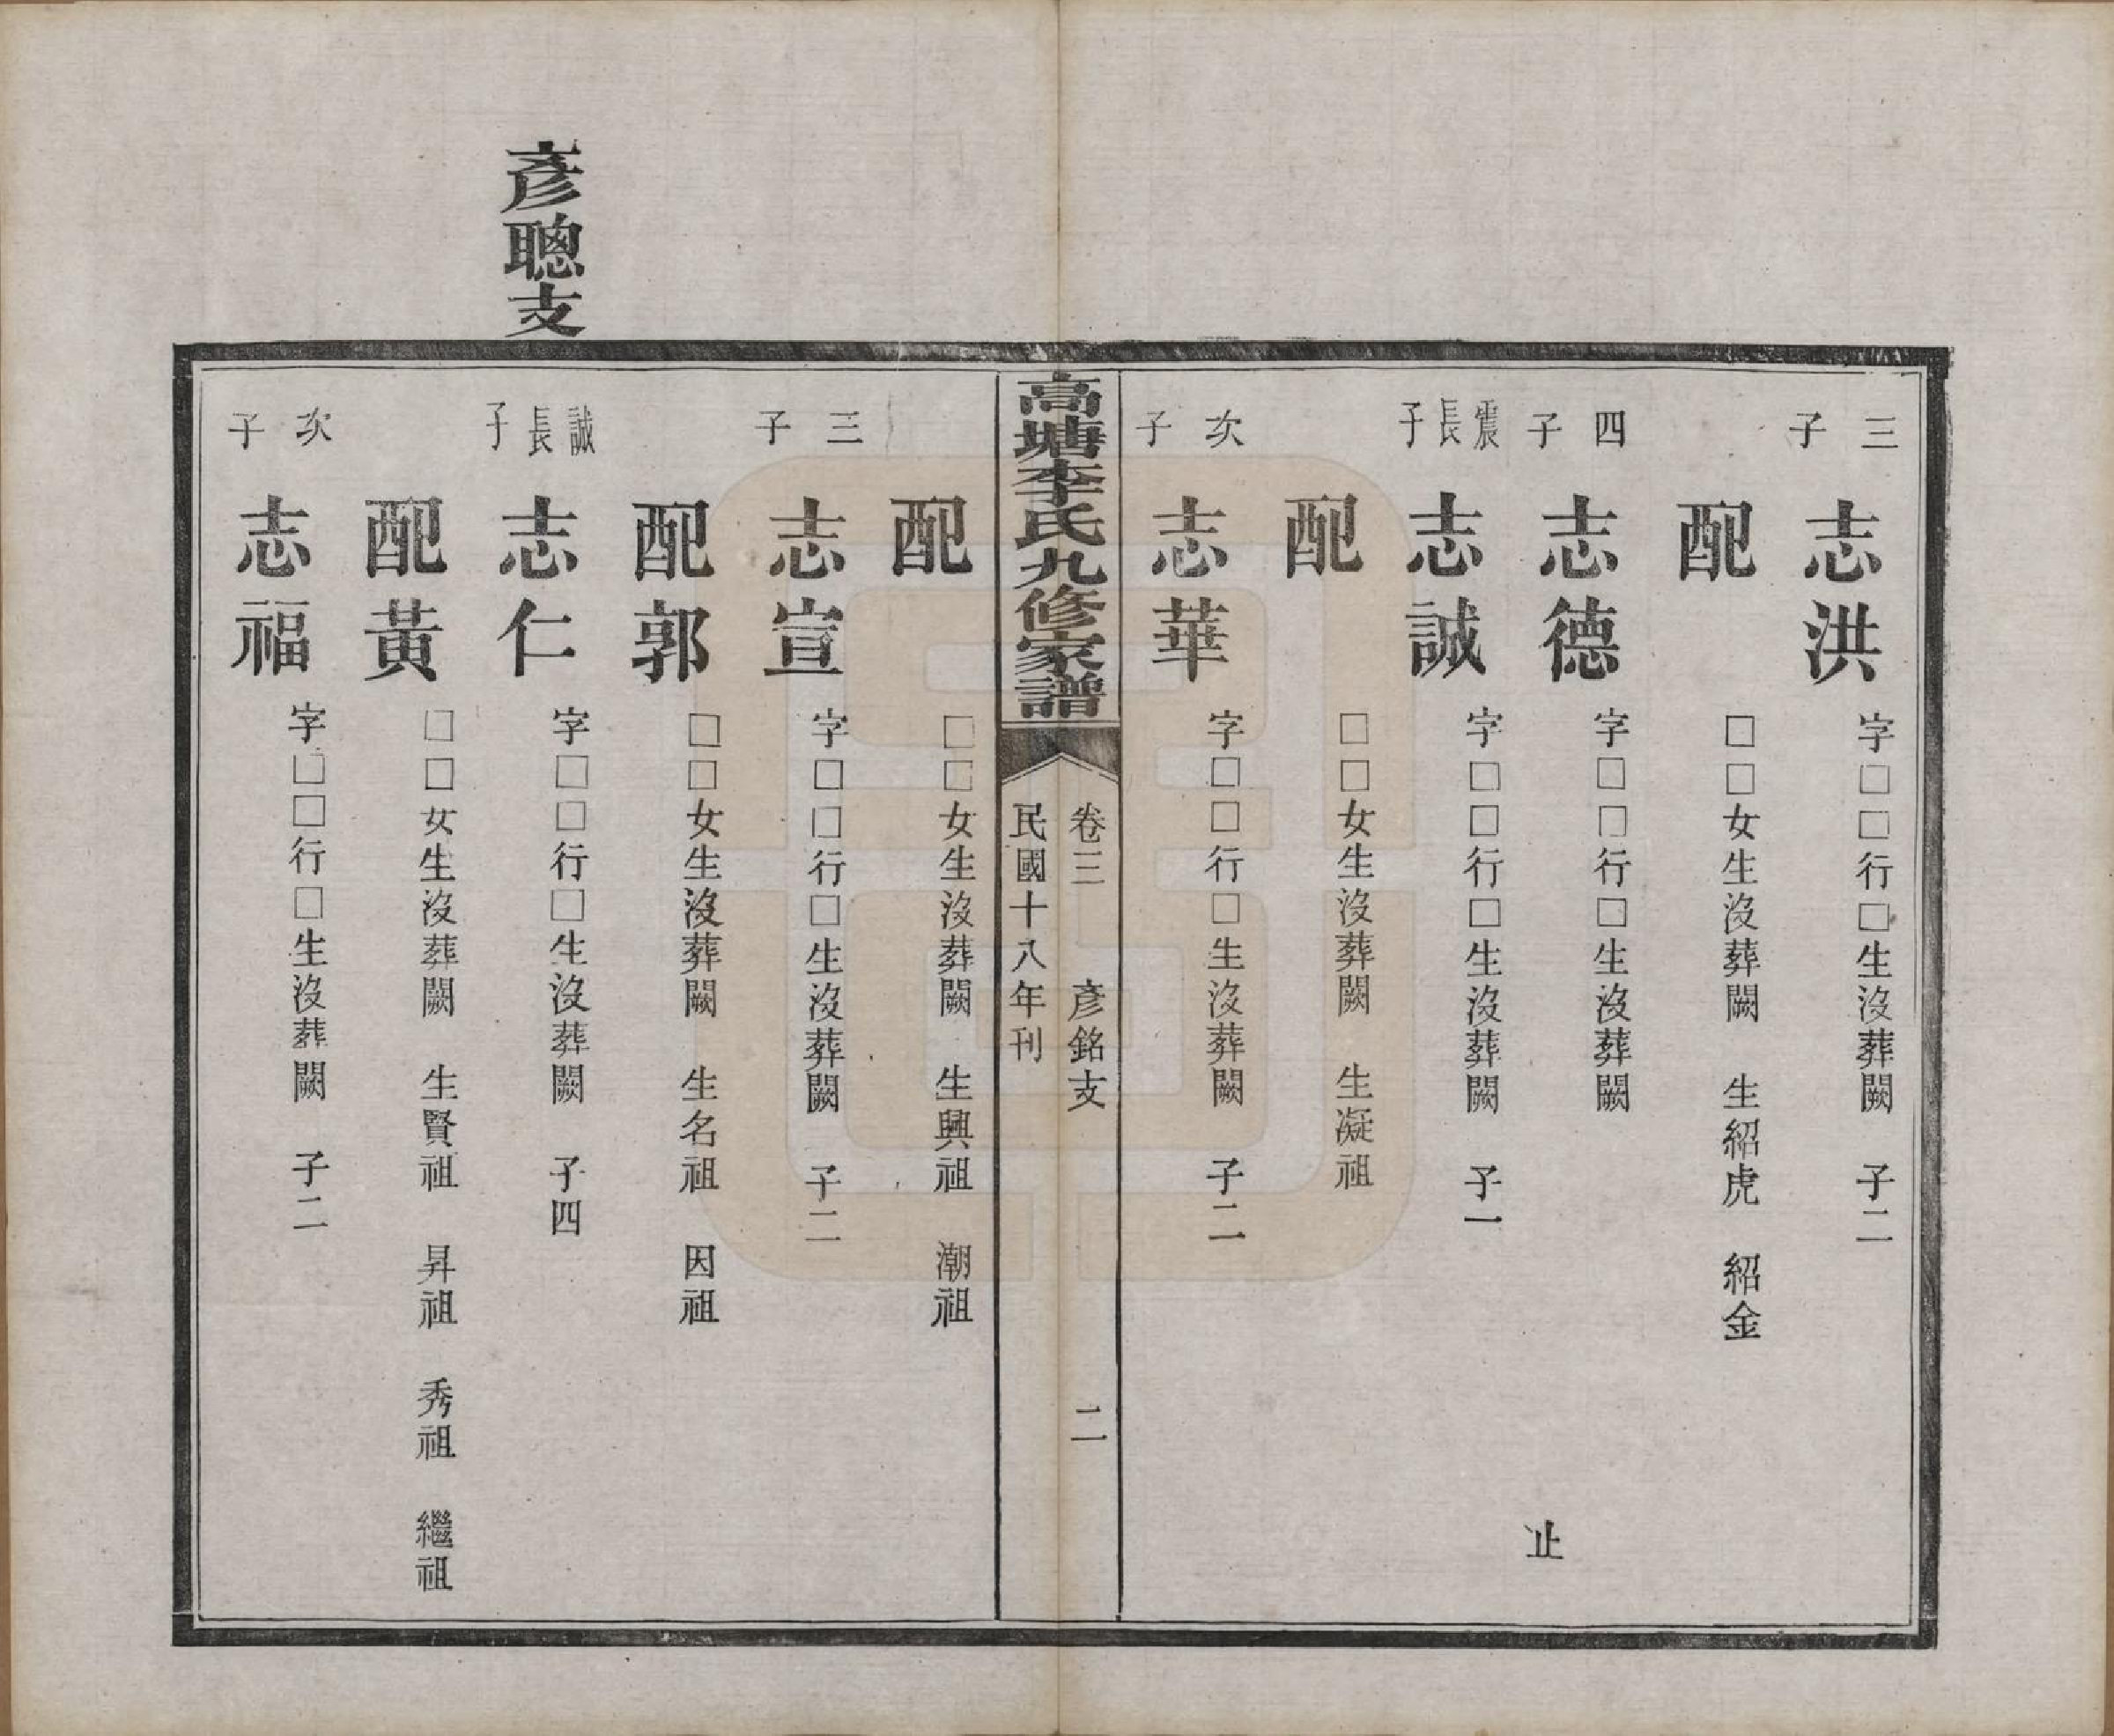 三子
志洪
字□□行□生沒葬闕　子二
配
□□女生沒葬闕　生紹虎　紹金
四子
志德
字□□行□生沒葬闕
止
震長子
志誠
字□□行□生沒葬闕　子一
配
□□女生沒葬闕　生凝祖
次子
志華
字□□行□生沒葬闕　子二
高塘李氏九修家譜
卷三　彥銘支　二
民國十八年刊
配
□□女生沒葬闕　生興祖　潮祖
三子
志宣
字□□行□生沒葬闕　子二
配郭
□□女生沒葬闕　生名祖　因祖
彥聰支
誠長子
志仁
字□□行□生沒葬闕　子四
配黃
□□女生沒葬闕　生賢祖　昇祖　秀祖　繼祖
次子
志福
字□□行□生沒葬闕　子二